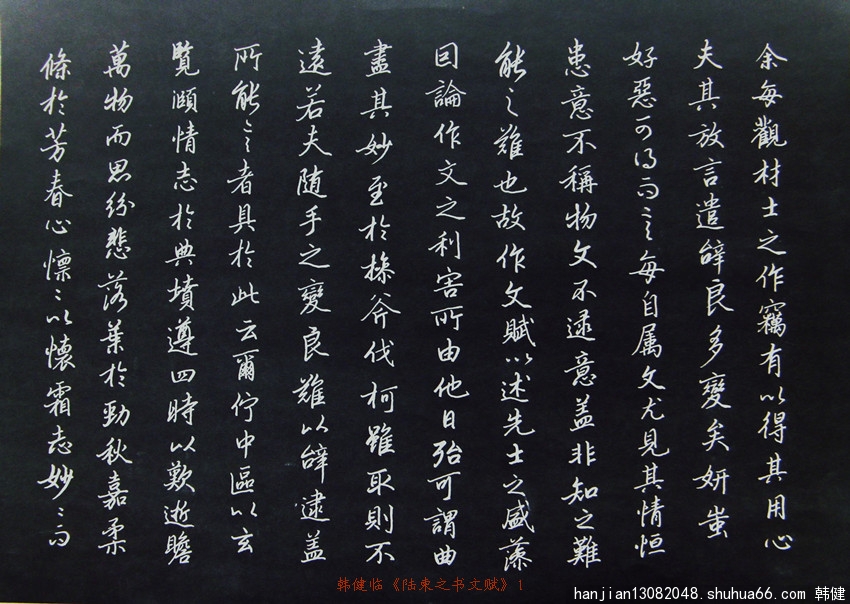 余每觀材士之作竊有以得其用心
夫其放言遣辭良多變矣妍蚩
好惡可得而言每自属文尤見其情恒
患意不稱物文不逮意盖非知之難
能之難也故作文賦以述先士之盛藻
因論作文之利害所由他日殆可謂曲
盡其妙至於操斧伐柯雖取則不
遠若夫随手之變良難以辭逮盖
所能言者具於此云爾佇中區以玄
覽頤情志於典墳遵四時以歎逝瞻
萬物而思紛悲落葉於勁秋嘉柔
條於芳春心懍懍以懷霜志妙妙而
韩健临《陆柬之书文赋》1
hanjian13082048.shuhua66.com 韩健